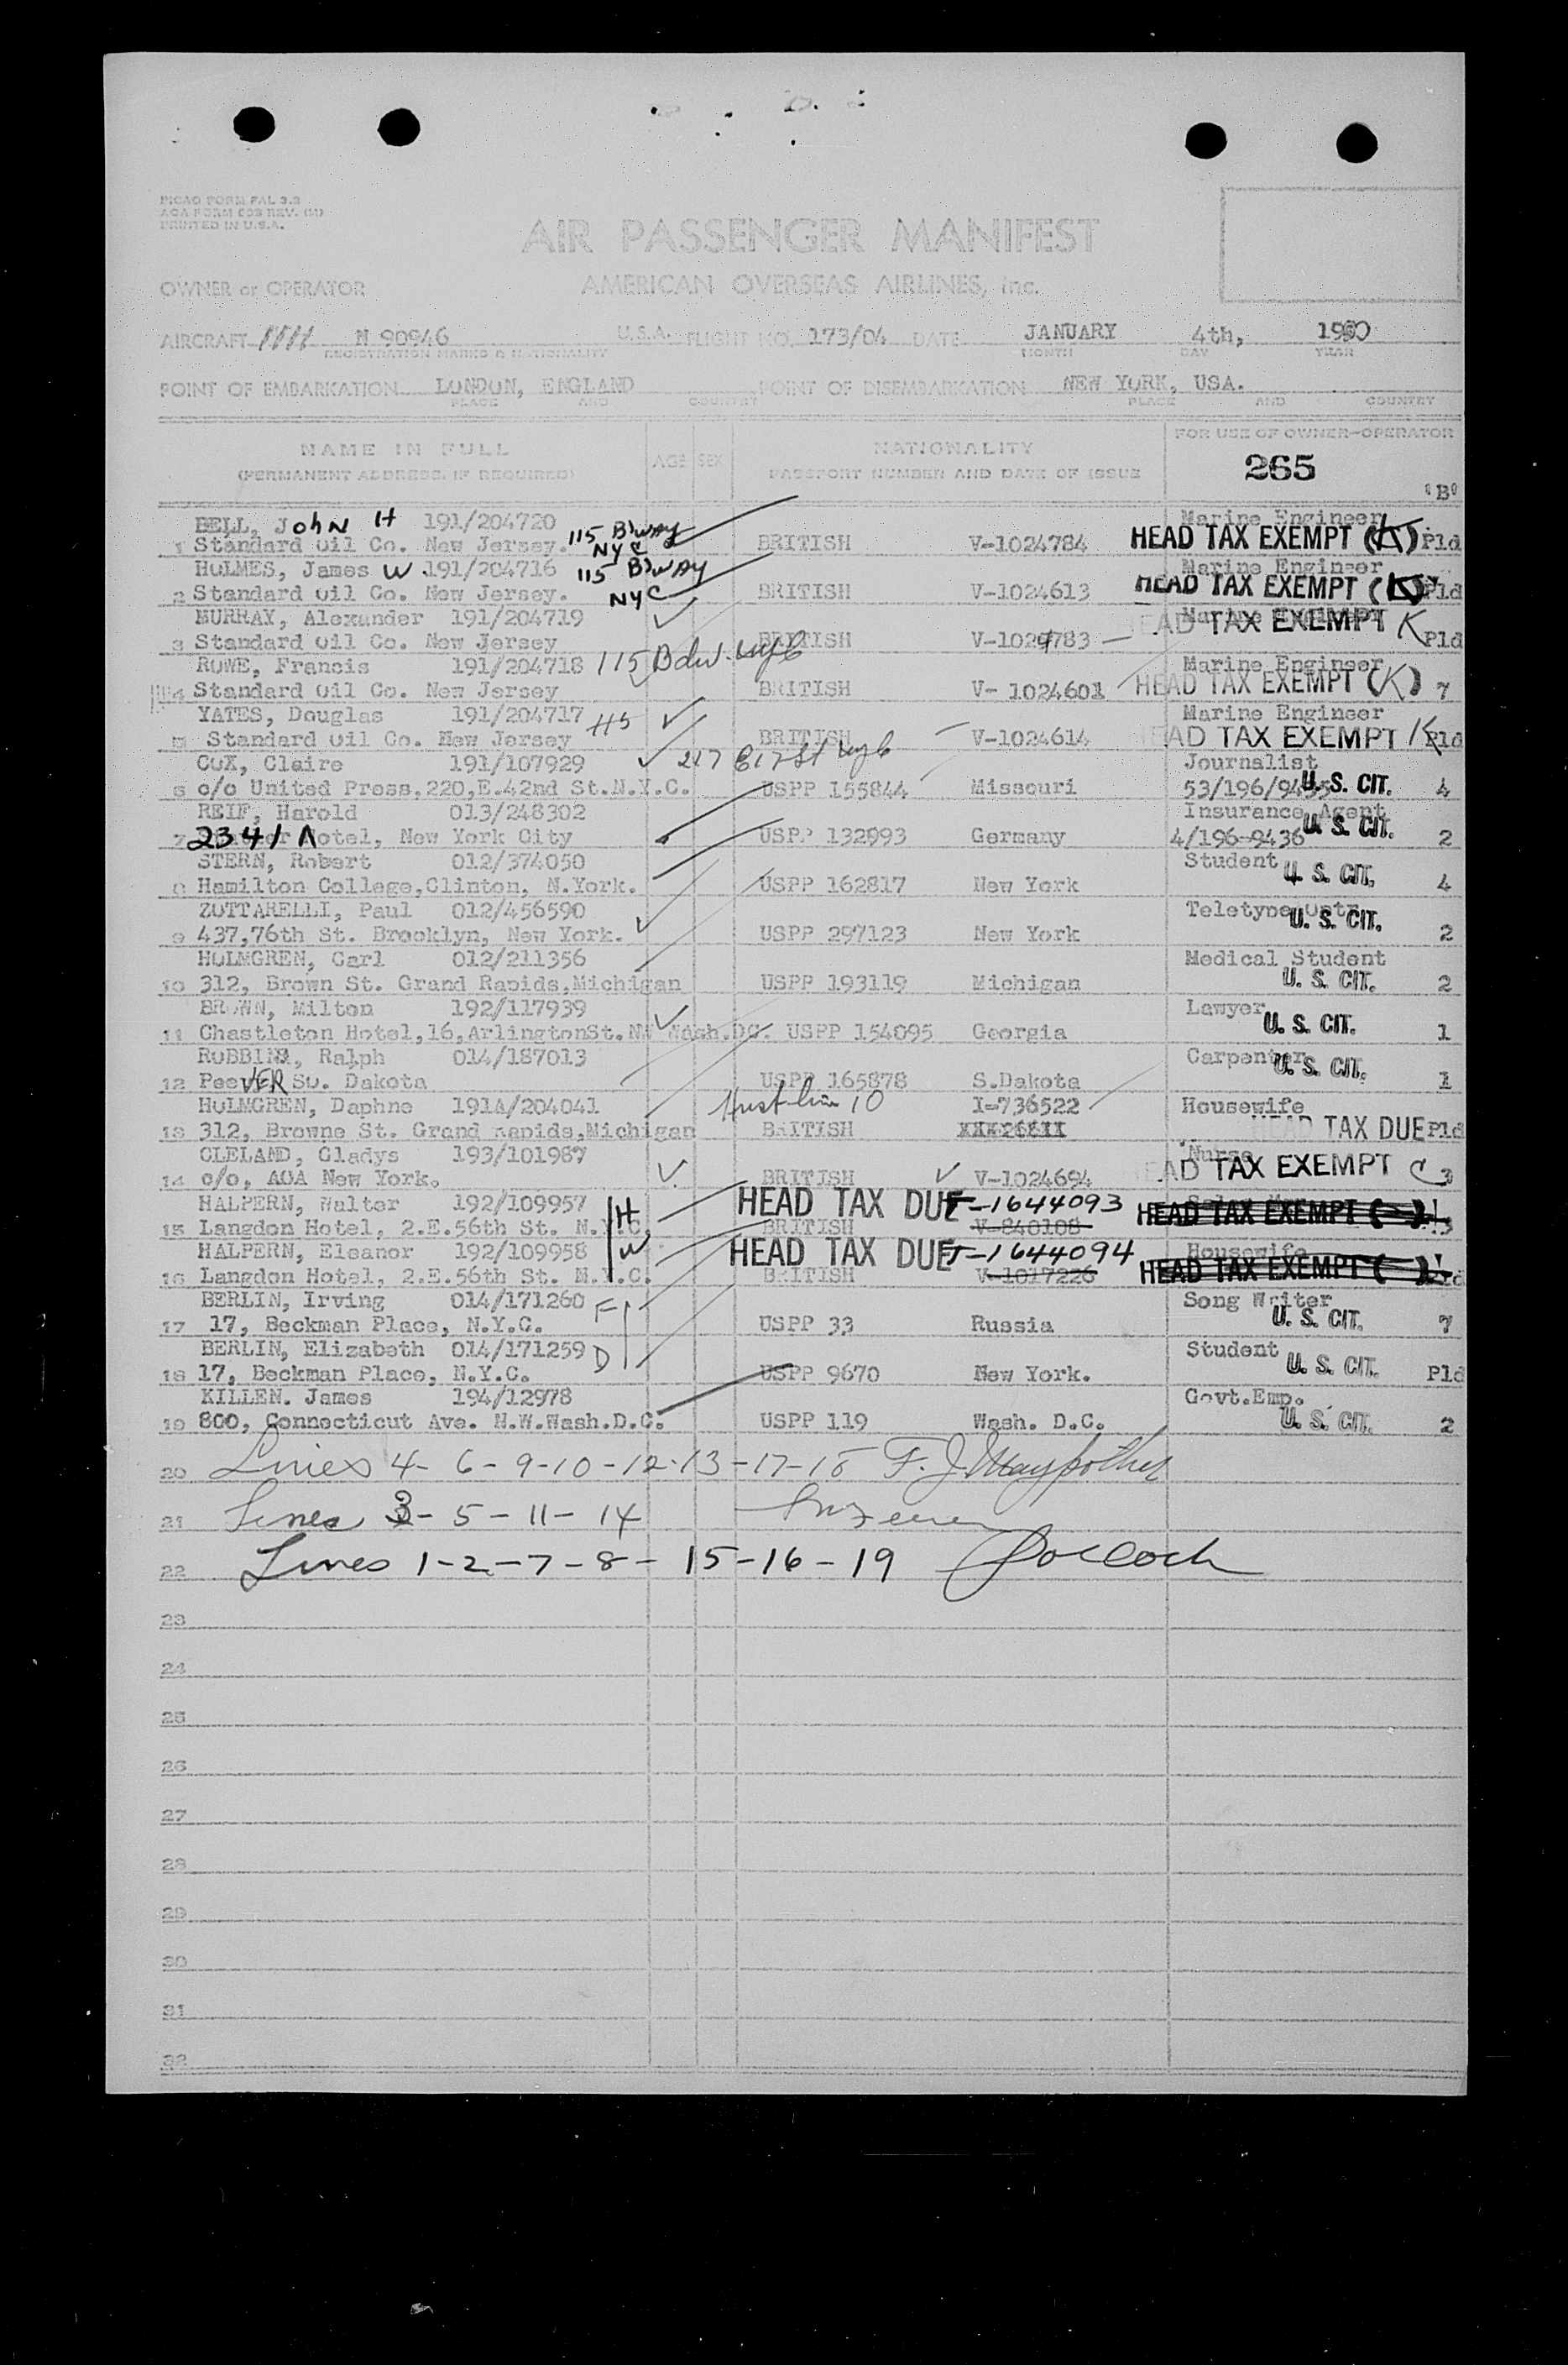 PICAO FORM FAL 3.2
AOA FORM 603 REV. (M)
PRINTED IN U.S.A.
AIR PASSENGER MANIFEST
OWNER or OPERATOR AMERICAN OVERSEAS AIRLINES, Inc.
AIRCRAFT N 90946 U.S.A. FLIGHT NO. 173/04 DATE JANUARY 4th, 1950
REGISTRATION MARKS & NATIONALITY MONTH DAY YEAR
POINT OF EMBARKATION LONDON, ENGLAND POINT OF DISEMBARKATION NEW YORK, USA.
PLACE AND COUNTRY PLACE AND COUNTRY
NAME IN FULL AGE SEX NATIONALITY FOR USE OF OWNER-OPERATOR
(PERMANENT ADDRESS, IF REQUIRED) PASSPORT NUMBER AND DATE OF ISSUE 265
'B'
BELL, John H 191/204720 115 Bdway NYC Marine Engineer
1 Standard Oil Co. New Jersey. BRITISH V-1024784 HEAD TAX EXEMPT (K) Pld
HOLMES, James W. 191/204716 115 Bdway NYC Marine Engineer
2 Standard Oil Co. New Jersey. BRITISH V-1024613 HEAD TAX EXEMPT (K) Pld
MURRAY, Alexander 191/204719 Marine Engineer
3 Standard Oil Co. New Jersey BRITISH V-1024783 HEAD TAX EXEMPT K Pld
ROWE, Francis 191/204718 115 Bdw. nyc Marine Engineer
4 Standard Oil Co. New Jersey BRITISH V- 1024601 HEAD TAX EXEMPT (K) 7
YATES, Douglas 191/204717 Marine Engineer
5 Standard Oil Co. New Jersey BRITISH V-1024614 HEAD TAX EXEMPT K Pld
COX, Claire 191/107929 Journalist
6 c/o United Press,220,E.42nd St.N.Y.C. USPP 155844 Missouri 53/196/9435 U. S. CIT. 4
REIF, Harold 013/248302 Insurance Agent
7 2341 Hotel, New York City USPP 132993 Germany 4/196-9436 U. S. CIT. 2
STERN, Robert 012/374050 Student
8 Hamilton College,Clinton, N.York. USPP 162817 New York U. S. CIT. 4
ZOTTARELLI, Paul 012/456590 Teletype
9 437,76th St. Brooklyn, New York. USPP 297123 New York U. S. CIT. 2
HOLMGREN, Carl 012/211356 Medical Student
10 312, Brown St. Grand Rapids,Michigan USPP 193119 Michigan U. S. CIT. 2
BROWN, Milton 192/117939 Lawyer
11 Chastleton Hotel,16,ArlingtonSt.NW Wash.DC. USPP 154095 Georgia U. S. CIT. 1
ROBBINS, Ralph 014/187013 Carpenter
12 PeeVER So. Dakota USPP 165878 S.Dakota U. S. CIT. 1
HOLMGREN, Daphne 191A/204041 Husb line 10 I-736522 Housewife
13 312, Browne St. Grand Rapids,Michigan BRITISH HEAD TAX DUE Pld
CLELAND, Gladys 193/101987 Nurse
14 c/o, AOA New York. BRITISH V-1024694 HEAD TAX EXEMPT C 3
HALPERN, Walter 192/109957 H HEAD TAX DUE T-1644093 Sales Man
15 Langdon Hotel, 2.E.56th St. N.Y.C. BRITISH V-840108 HEAD TAX EXEMPT ( ) 3
HALPERN, Eleanor 192/109958 W HEAD TAX DUE T-1644094 Housewife
16 Langdon Hotel, 2.E.56th St. N.Y.C. BRITISH V-1017226 HEAD TAX EXEMPT ( ) Pld
BERLIN, Irving 014/171260 F Song Writer
17 17, Beckman Place, N.Y.C. USPP 33 Russia U. S. CIT. 7
BERLIN, Elizabeth 014/171259 D Student
18 17, Beckman Place, N.Y.C. USPP 9670 New York. U. S. CIT. Pld
KILLEN. James 194/12978 Govt.Emp.
19 800, Connecticut Ave. N.W.Wash.D.C. USPP 119 Wash. D.C. U. S. CIT. 2
20 Lines 4- 6-9-10-12-13-17-18 F. J. Maypother
21 Lines 3-5-11-14
22 Lines 1-2-7-8-15-16-19 Pollock
23
24
25
26
27
28
29
30
31
32